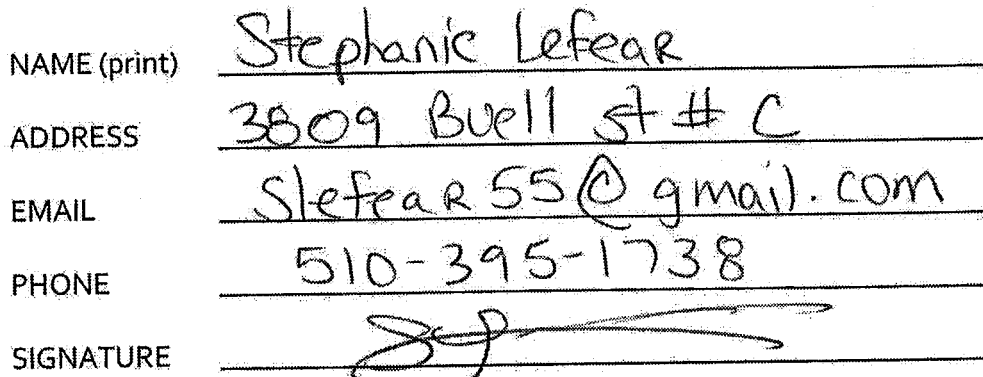 NAME (print) Stephanie Lefear
ADDRESS 3809 Buell st # C
EMAIL Slefear55@gmail.com
PHONE 510-395-1738
SIGNATURE